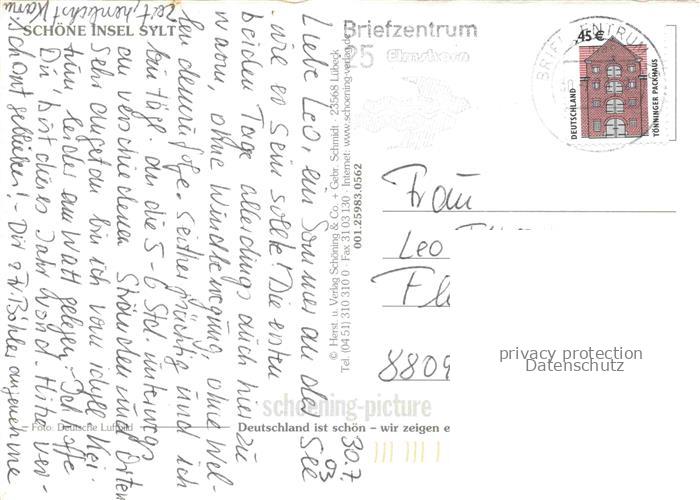 SCHÖNE INSEL SYLT
30.7.
03
Liebe Leo, ein Sommer an der See
wie er sein sollte! Die ersten
beiden Tage allerdings auch hier zu
warm, ohne Windbewegung, ohne Wel-
len demzufolge. Seither prächtig und ich
bin tägl. an die 5-6 Std. unterwegs
an verschiedenen Stränden und Orten
Sehr angetan bin ich vom idyll. Kei-
tum, leider am Watt gelegen. Ich hoffe
Du bist dieses Jahr von d. Hitze ver-
schont geblieben! - Dir
angenehme
Zeit, herzlichst
© Herst. u. Verlag Schöning & Co. + Gebr. Schmidt · 23568 Lübeck
Tel. (04 51) 310 310 0 · Fax 31 03 130 · Internet: www.schoening-verlag.de
001.25983.0562
Briefzentrum
25 Elmshorn
BRIEFZENTRUM
45 €
DEUTSCHLAND
TÖNNINGER PACKHAUS
Frau
Leo
8809
privacy protection
Datenschutz
schoening-picture
Foto: Deutsche Luftbild
Deutschland ist schön – wir zeigen e